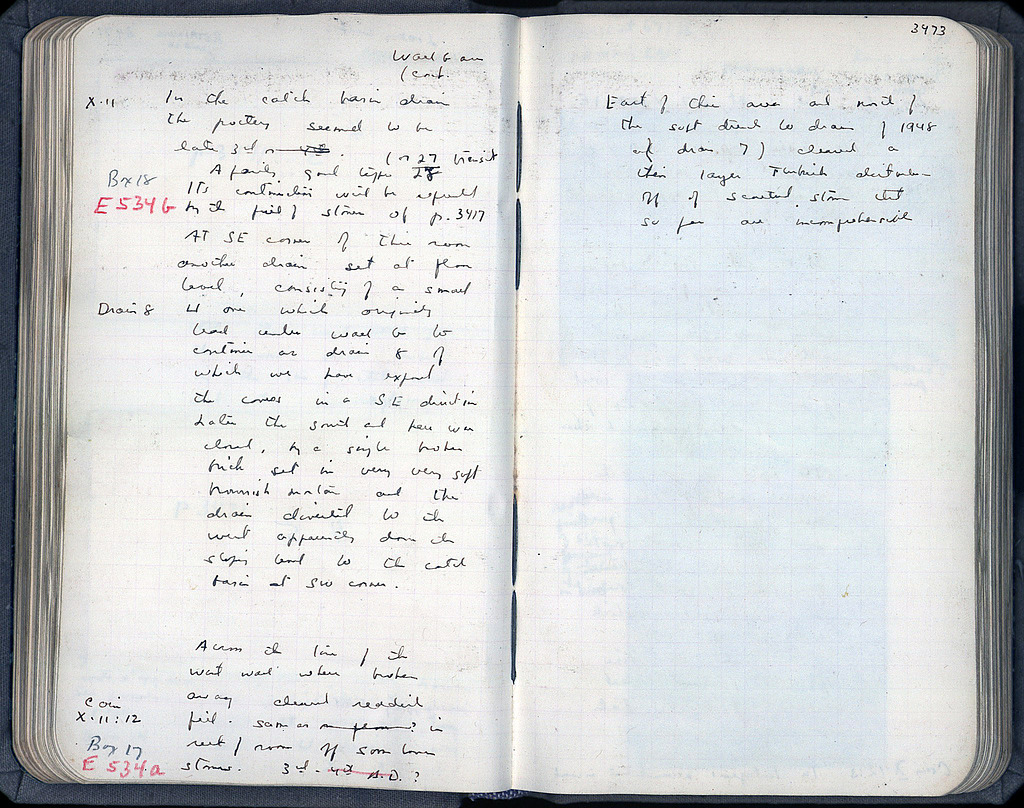 3473
Wall G
(cont.
X.11 In the catch basin drain
the pottery seemed to be
late 3rd or 4th. (on 27 transit
A fairly good type 28
Box 18 Its continuation will be
E 534 b by the field stones of p. 3417
At SE corner of this room
another drain set at floor
level, consisting of a small
Drain 8 one which originally
lead under wall G to
continue as drain 8 of
which we have exposed
the corner in a SE direction
Later the south end here was
closed, by a single broken
brick set in very very soft
brownish mortar and the
drain diverted to the
west apparently down the
sloping bed to the catch
basin at SW corner.
Across the line of the
west wall where broken
away cleared reddish
Coin
X.11:12 fill. Same as ? in
Box 17 rest of room off some lower
E 534a stones. 3rd - 4th A.D. ?
East of this area and north of
the soft dread to drain of 1948
of drain 7) cleared a
thin layer Turkish disturbance
off of scattered stones that
so far are incomprehensible